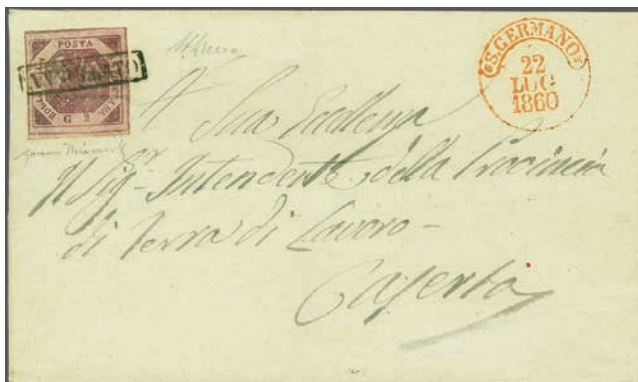 POSTA
ANNULLATO
G 2
S. GERMANO
22
LUG
1860
A Sua Eccellenza
Il Sig. Intendente della Provincia
di Terra di Lavoro -
Caserta